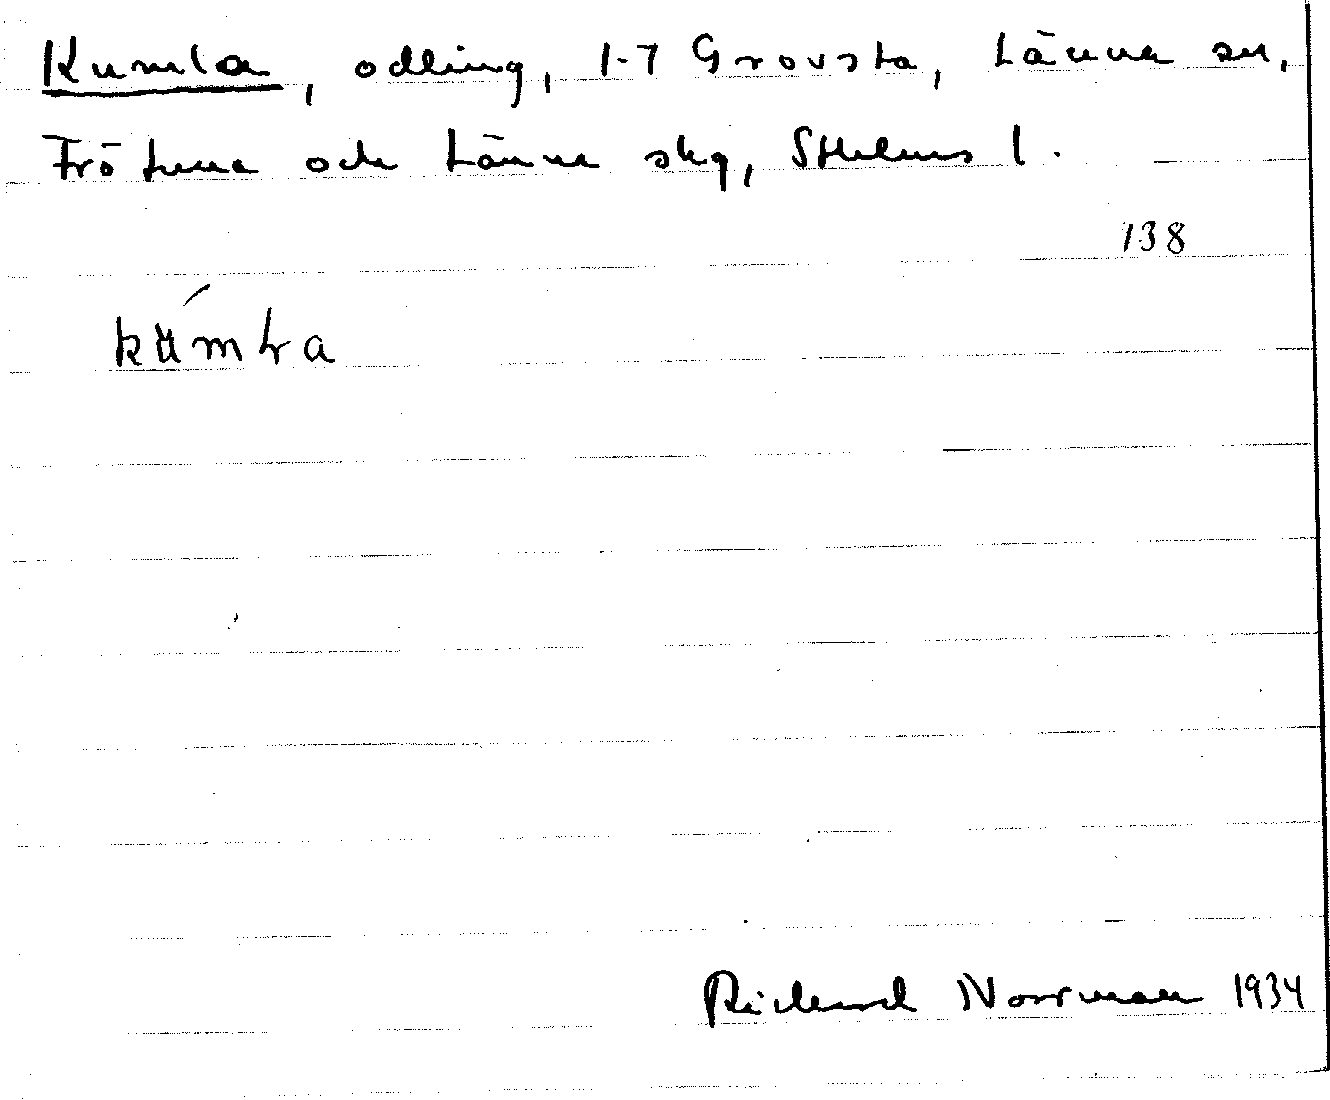 Kumla, odling, 1-7 Grovsta, Länna sn,
Frötuna och Länna skg, Sthlms l.
138
Richard Norrman 1934